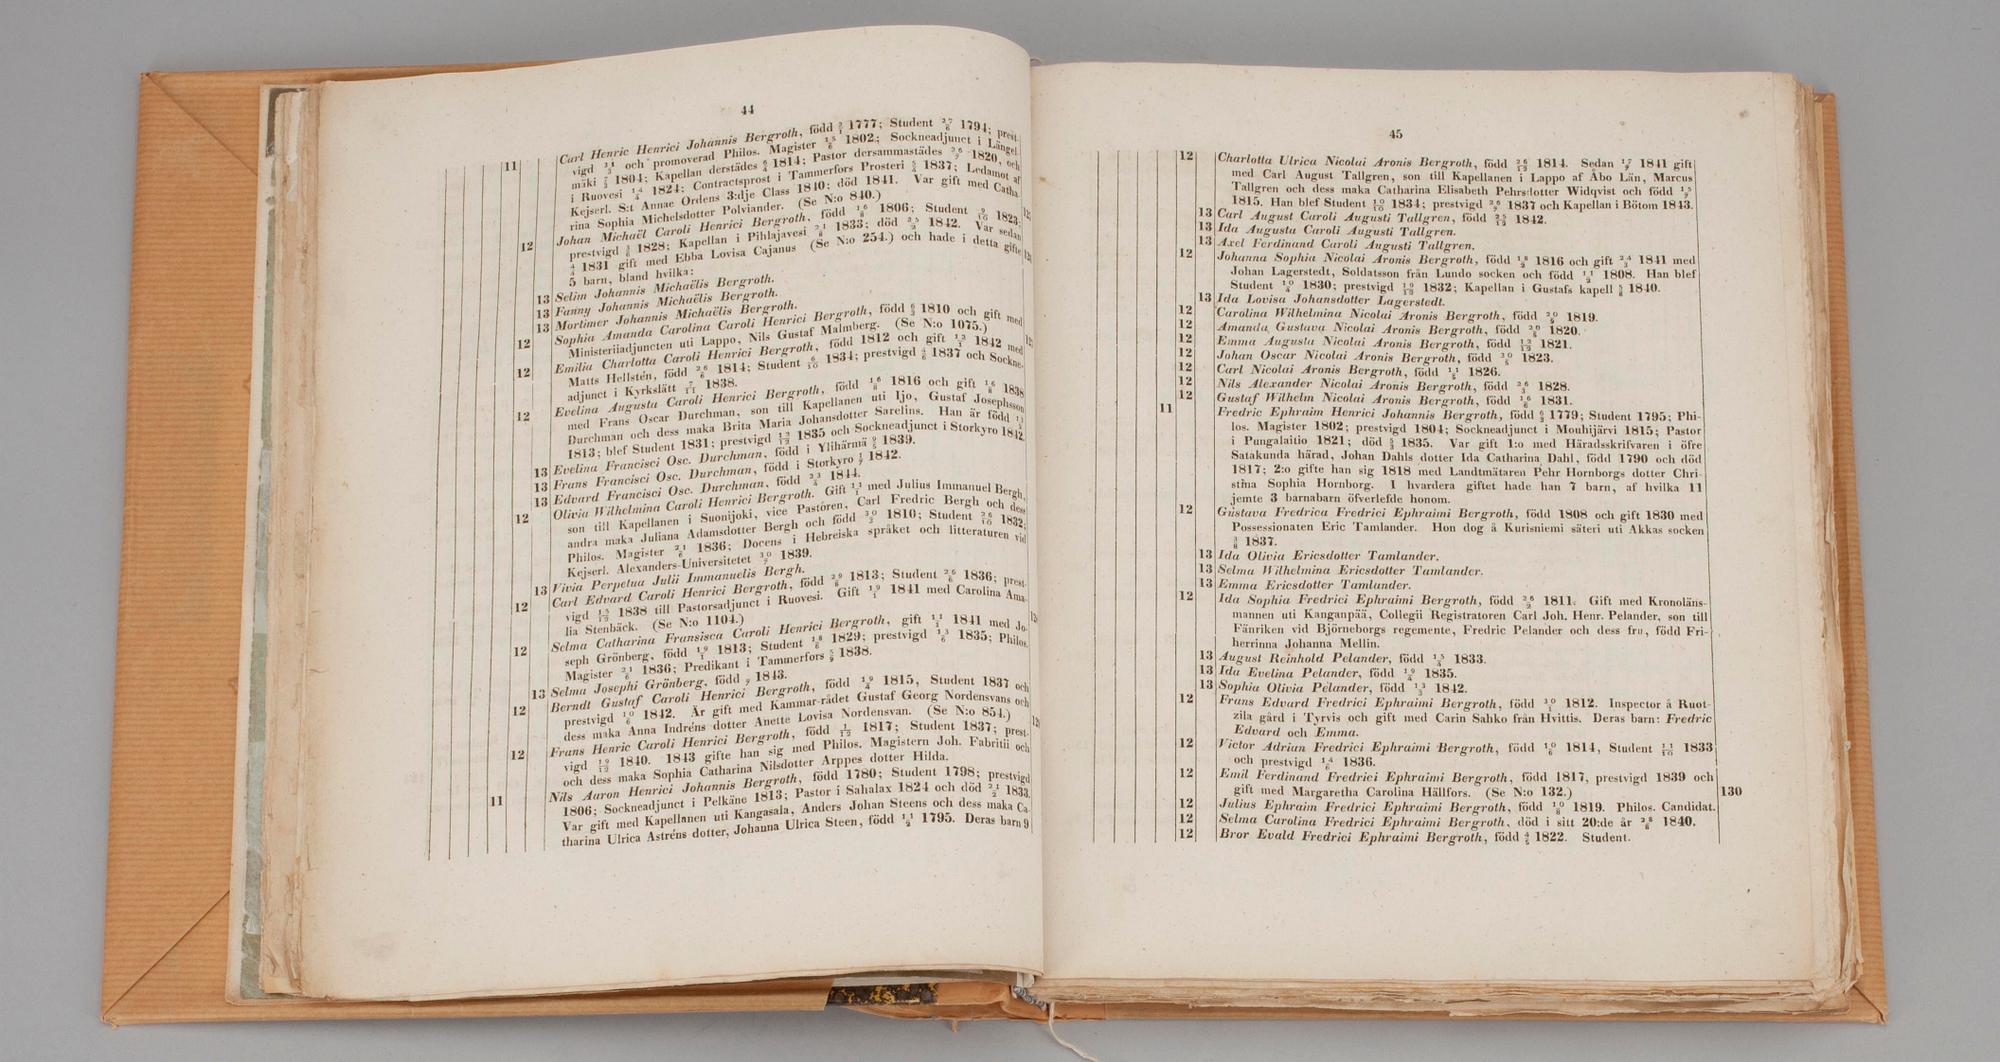 44
11 Carl Henric Henrici Johannis Bergroth, född 2/1 1777; Student 27/6 1794; prest-
vigd och promoverad Philos. Magister 15/6 1802; Sockneadjunct i Längel-
mäki 1804; Kapellan derstädes 1814; Pastor dersammastädes 1820, och
i Ruovesi 1824; Contractsprost i Tammerfors Prosteri 1837; Ledamot af
Kejserl. S:t Annae Ordens 3:dje Class 1840; död 1841. Var gift med Catha-
rina Sophia Michelsdotter Polviander. (Se N:o 840.)
12 Johan Michaël Caroli Henrici Bergroth, född 16/8 1806; Student 9/10 1823;
prestvigd 1828; Kapellan i Pihlajavesi 1833; död 1842. Var sedan
1831 gift med Ebba Lovisa Cajanus (Se N:o 254.) och hade i detta gifte
5 barn, bland hvilka:
13 Selim Johannis Michaëlis Bergroth.
13 Fanny Johannis Michaëlis Bergroth.
13 Mortimer Johannis Michaëlis Bergroth.
12 Sophia Amanda Carolina Caroli Henrici Bergroth, född 1810 och gift med
Ministeriiadjuncten uti Lappo, Nils Gustaf Malmberg. (Se N:o 1075.)
12 Emilia Charlotta Caroli Henrici Bergroth, född 1812 och gift 1842 med
Matts Hellstén, född 26/6 1814; Student 6/10 1834; prestvigd 1837 och Sockne-
adjunct i Kyrkslätt 7/11 1838.
12 Evelina Augusta Caroli Henrici Bergroth, född 16/8 1816 och gift 16/8 1838
med Frans Oscar Durchman, son till Kapellanen uti Ijo, Gustaf Josephsson
Durchman och dess maka Brita Maria Johansdotter Sarelins. Han är född
1813; blef Student 1831; prestvigd 1835 och Sockneadjunct i Storkyro 1842.
13 Evelina Francisci Osc. Durchman, född i Ylihärmä 1839.
13 Frans Francisci Osc. Durchman, född i Storkyro 1842.
13 Edvard Francisci Osc. Durchman, född 1844.
12 Olivia Wilhelmina Caroli Henrici Bergroth. Gift med Julius Immanuel Bergh,
son till Kapellanen i Suonijoki, vice Pastoren, Carl Fredric Bergh och dess
andra maka Juliana Adamsdotter Bergh och född 1810; Student 26/10 1832;
Philos. Magister 21/6 1836; Docens i Hebreiska språket och litteraturen vid
Kejserl. Alexanders-Universitetet 1839.
13 Vivia Perpetua Julii Immanuelis Bergh.
12 Carl Edvard Caroli Henrici Bergroth, född 29/8 1813; Student 26/6 1836; prest-
vigd 1838 till Pastorsadjunct i Ruovesi. Gift 19/1 1841 med Carolina Ama-
lia Stenbäck. (Se N:o 1104.)
12 Selma Catharina Fransisca Caroli Henrici Bergroth, gift 1841 med Jo-
seph Grönberg, född 19/1 1813; Student 18/6 1829; prestvigd 13/6 1835; Philos.
Magister 21/6 1836; Predikant i Tammerfors 1838.
13 Selma Josephi Grönberg, född 1843.
12 Berndt Gustaf Caroli Henrici Bergroth, född 19/4 1815, Student 1837 och
prestvigd 10/6 1842. Är gift med Kammar-rådet Gustaf Georg Nordensvans och
dess maka Anna Indréns dotter Anette Lovisa Nordensvan. (Se N:o 854.)
12 Frans Henric Caroli Henrici Bergroth, född 1/12 1817; Student 1837; prest-
vigd 19/12 1840. 1843 gifte han sig med Philos. Magistern Joh. Fabritii och
och dess maka Sophia Catharina Nilsdotter Arppes dotter Hilda.
11 Nils Aaron Henrici Johannis Bergroth, född 1780; Student 1798; prestvigd
1806; Sockneadjunct i Pelkäne 1813; Pastor i Sahalax 1824 och död 1833.
Var gift med Kapellanen uti Kangasala, Anders Johan Steens och dess maka Ca-
tharina Ulrica Astréns dotter, Johanna Ulrica Steen, född 1795. Deras barn 9
45
12 Charlotta Ulrica Nicolai Aronis Bergroth, född 26/12 1814. Sedan 1841 gift
med Carl August Tallgren, son till Kapellanen i Lappo af Åbo Län, Marcus
Tallgren och dess maka Catharina Elisabeth Pehrsdotter Widqvist och född
1815. Han blef Student 10/10 1834; prestvigd 1837 och Kapellan i Bötom 1843.
13 Carl August Caroli Augusti Tallgren, född 25/12 1842.
13 Ida Augusta Caroli Augusti Tallgren.
13 Axel Ferdinand Caroli Augusti Tallgren.
12 Johanna Sophia Nicolai Aronis Bergroth, född 1816 och gift 1841 med
Johan Lagerstedt, Soldatsson från Lundo socken och född 1808. Han blef
Student 1830; prestvigd 19/12 1832; Kapellan i Gustafs kapell 1840.
13 Ida Lovisa Johansdotter Lagerstedt.
12 Carolina Wilhelmina Nicolai Aronis Bergroth, född 1819.
12 Amanda Gustava Nicolai Aronis Bergroth, född 1820.
12 Emma Augusta Nicolai Aronis Bergroth, född 1821.
12 Johan Oscar Nicolai Aronis Bergroth, född 1823.
12 Carl Nicolai Aronis Bergroth, född 1826.
12 Nils Alexander Nicolai Aronis Bergroth, född 1828.
12 Gustaf Wilhelm Nicolai Aronis Bergroth, född 1831.
11 Fredric Ephraim Henrici Johannis Bergroth, född 1779; Student 1795; Phi-
los. Magister 1802; prestvigd 1804; Sockneadjunct i Mouhijärvi 1815; Pastor
i Pungalaitio 1821; död 1835. Var gift 1:o med Häradsskrifvaren i öfre
Satakunda härad, Johan Dahls dotter Ida Catharina Dahl, född 1790 och död
1817; 2:o gifte han sig 1818 med Landtmätaren Pehr Hornborgs dotter Chri-
stina Sophia Hornborg. I hvardera giftet hade han 7 barn, af hvilka 11
jemte 3 barnabarn öfverlefde honom.
12 Gustava Fredrica Fredrici Ephraimi Bergroth, född 1808 och gift 1830 med
Possessionaten Eric Tamlander. Hon dog å Kurisniemi säteri uti Akkas socken
3/8 1837.
13 Ida Olivia Ericsdotter Tamlander.
13 Selma Wilhelmina Ericsdotter Tamlander.
13 Emma Ericsdotter Tamlander.
12 Ida Sophia Fredrici Ephraimi Bergroth, född 1811. Gift med Kronoläns-
mannen uti Kanganpää, Collegii Registratoren Carl Joh. Henr. Pelander, son till
Fänriken vid Björneborgs regemente, Fredric Pelander och dess fru, född Fri-
herrinna Johanna Mellin.
13 August Reinhold Pelander, född 15/4 1833.
13 Ida Evelina Pelander, född 19/4 1835.
13 Sophia Olivia Pelander, född 13/3 1842.
12 Frans Edvard Fredrici Ephraimi Bergroth, född 1812. Inspector å Ruot-
zila gård i Tyrvis och gift med Carin Sahko från Hvittis. Deras barn: Fredric
Edvard och Emma.
12 Victor Adrian Fredrici Ephraimi Bergroth, född 10/6 1814, Student 11/10 1833
och prestvigd 14/6 1836.
12 Emil Ferdinand Fredrici Ephraimi Bergroth, född 1817, prestvigd 1839 och
gift med Margaretha Carolina Hällfors. (Se N:o 132.) 130
12 Julius Ephraim Fredrici Ephraimi Bergroth, född 10/8 1819. Philos. Candidat.
12 Selma Carolina Fredrici Ephraimi Bergroth, död i sitt 20:de år 1840.
12 Bror Evald Fredrici Ephraimi Bergroth, född 1822. Student.